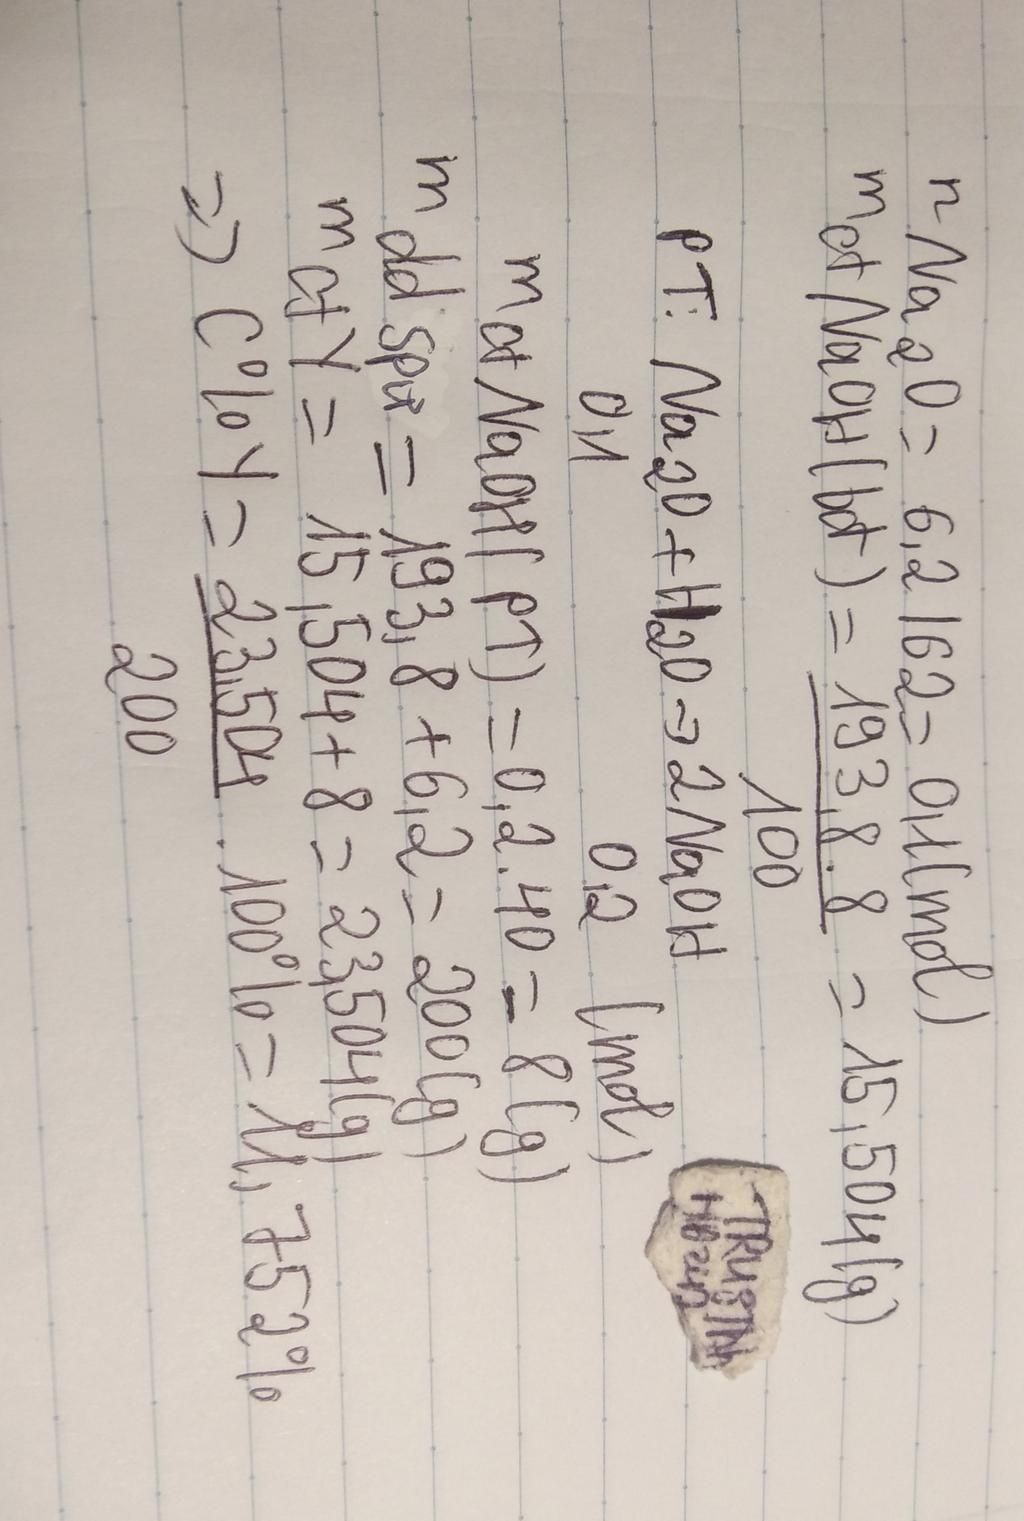 n Na2O = 6,2/62 = 0,1 (mol)
mct NaOH (bđ) = 193,8.8 = 15,504 (g)
100
PT: Na2O + H2O -> 2NaOH
0,1 0,2 (mol)
mct NaOH (PT) = 0,2.40 = 8 (g)
m dd spư = 193,8 + 6,2 = 200 (g)
m ct Y = 15,504 + 8 = 23,504 (g)
=> C% Y = 23,504 . 100% = 11,752%
200
TRUSTIN